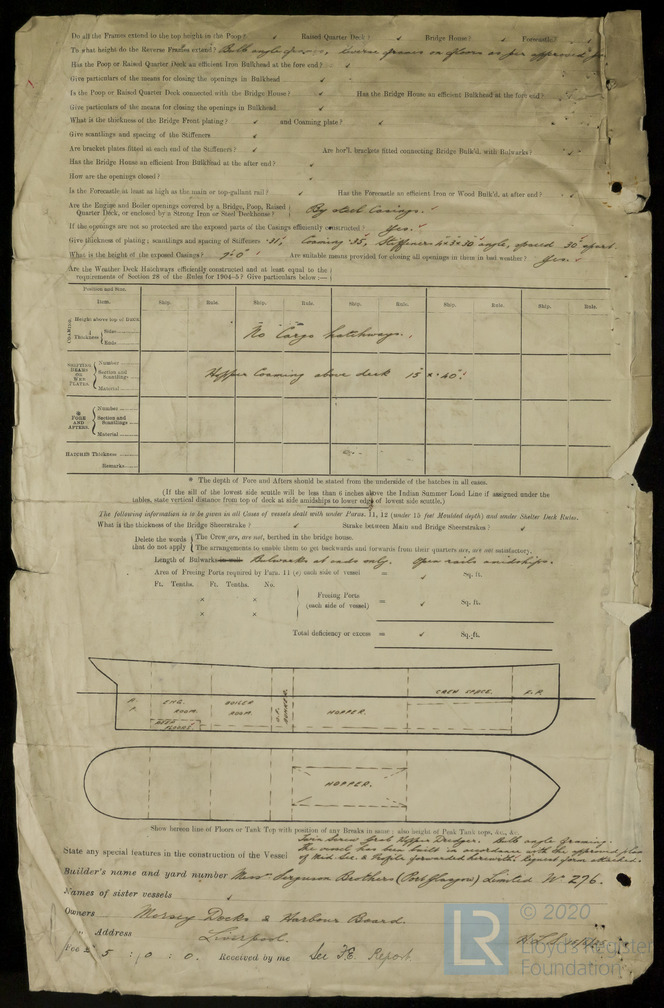 Do all the Frames extend to the top height in the Poop? ✓ Raised Quarter Deck? ✓ Bridge House? ✓ Forecastle? ✓
To what height do the Reverse Frames extend? Bulb angle frames, reverse frames on floors as per approved
Has the Poop or Raised Quarter Deck an efficient Iron Bulkhead at the fore end? ✓
Give particulars of the means for closing the openings in Bulkhead ✓
Is the Poop or Raised Quarter Deck connected with the Bridge House? ✓ Has the Bridge House an efficient Bulkhead at the fore end?
Give particulars of the means for closing the openings in Bulkhead ✓
What is the thickness of the Bridge Front plating? ✓ and Coaming plate? ✓
Give scantlings and spacing of the Stiffeners ✓
Are bracket plates fitted at each end of the Stiffeners? ✓ Are hor'l. brackets fitted connecting Bridge Bulk'd. with Bulwarks?
Has the Bridge House an efficient Iron Bulkhead at the after end? ✓
How are the openings closed? ✓
Is the Forecastle at least as high as the main or top-gallant rail? ✓ Has the Forecastle an efficient Iron or Wood Bulk'd. at after end? ✓
Are the Engine and Boiler openings covered by a Bridge, Poop, Raised
Quarter Deck, or enclosed by a Strong Iron or Steel Deckhouse? By steel Casings. ✓
If the openings are not so protected are the exposed parts of the Casings efficiently constructed? Yes. ✓
Give thickness of plating; scantlings and spacing of Stiffeners Coaming .35, Stiffeners angle, spaced 30" apart.
What is the height of the exposed Casings? 7'0" ✓ Are suitable means provided for closing all openings in them in bad weather? Yes. ✓
Are the Weather Deck Hatchways efficiently constructed and at least equal to the
requirements of Section 28 of the Rules for 1904-5? Give particulars below :—
Position and Size.
Item. Ship. Rule. Ship. Rule. Ship. Rule. Ship. Rule. Ship. Rule.
COAMING Height above top of DECK
Thickness Sides
Ends
No Cargo hatchways.
SHIFTING BEAMS OR WEB PLATES. Number
Section and Scantlings
Material
Hopper Coaming above deck 15" × .40". ✓
* FORE AND AFTERS. Number
Section and Scantlings
Material
HATCHES Thickness
Remarks
* The depth of Fore and Afters should be stated from the underside of the hatches in all cases.
(If the sill of the lowest side scuttle will be less than 6 inches above the Indian Summer Load Line if assigned under the
tables, state vertical distance from top of deck at side amidships to lower edge of lowest side scuttle.)
The following information is to be given in all Cases of vessels dealt with under Paras. 11, 12 (under 15 feet Moulded depth) and under Shelter Deck Rules.
What is the thickness of the Bridge Sheerstrake? ✓ Strake between Main and Bridge Sheerstrakes? ✓
Delete the words that do not apply The Crew are, are not, berthed in the bridge house.
The arrangements to enable them to get backwards and forwards from their quarters are, are not satisfactory.
Length of Bulwarks Bulwarks at ends only. Open rails amidships.
Area of Freeing Ports required by Para. 11 (e) each side of vessel = ✓ Sq. ft.
Ft. Tenths. Ft. Tenths. No.
× ×
Freeing Ports (each side of vessel) = ✓ Sq. ft.
× ×
Total deficiency or excess = ✓ Sq. ft.
A. P. ENG. ROOM. DEEP FLOORS. BOILER ROOM. BUNKER. HOPPER. CREW SPACE. F.P.
HOPPER.
Show hereon line of Floors or Tank Top with position of any Breaks in same; also height of Peak Tank tops, &c., &c.
State any special features in the construction of the Vessel Twin Screw Grab Hopper Dredger. Bulb angle framing.
The vessel has been built in accordance with the approved plan
of Mid Sec. & Profile forwarded herewith. Request form attached.
Builder's name and yard number Messrs Ferguson Brothers (Port Glasgow) Limited No 276.
Names of sister vessels ✓
Owners Mersey Docks & Harbour Board.
" Address Liverpool.
Fee £ 5 : 0 : 0. Received by me See F.E. Report
LR
© 2020
Lloyd's Register
Foundation